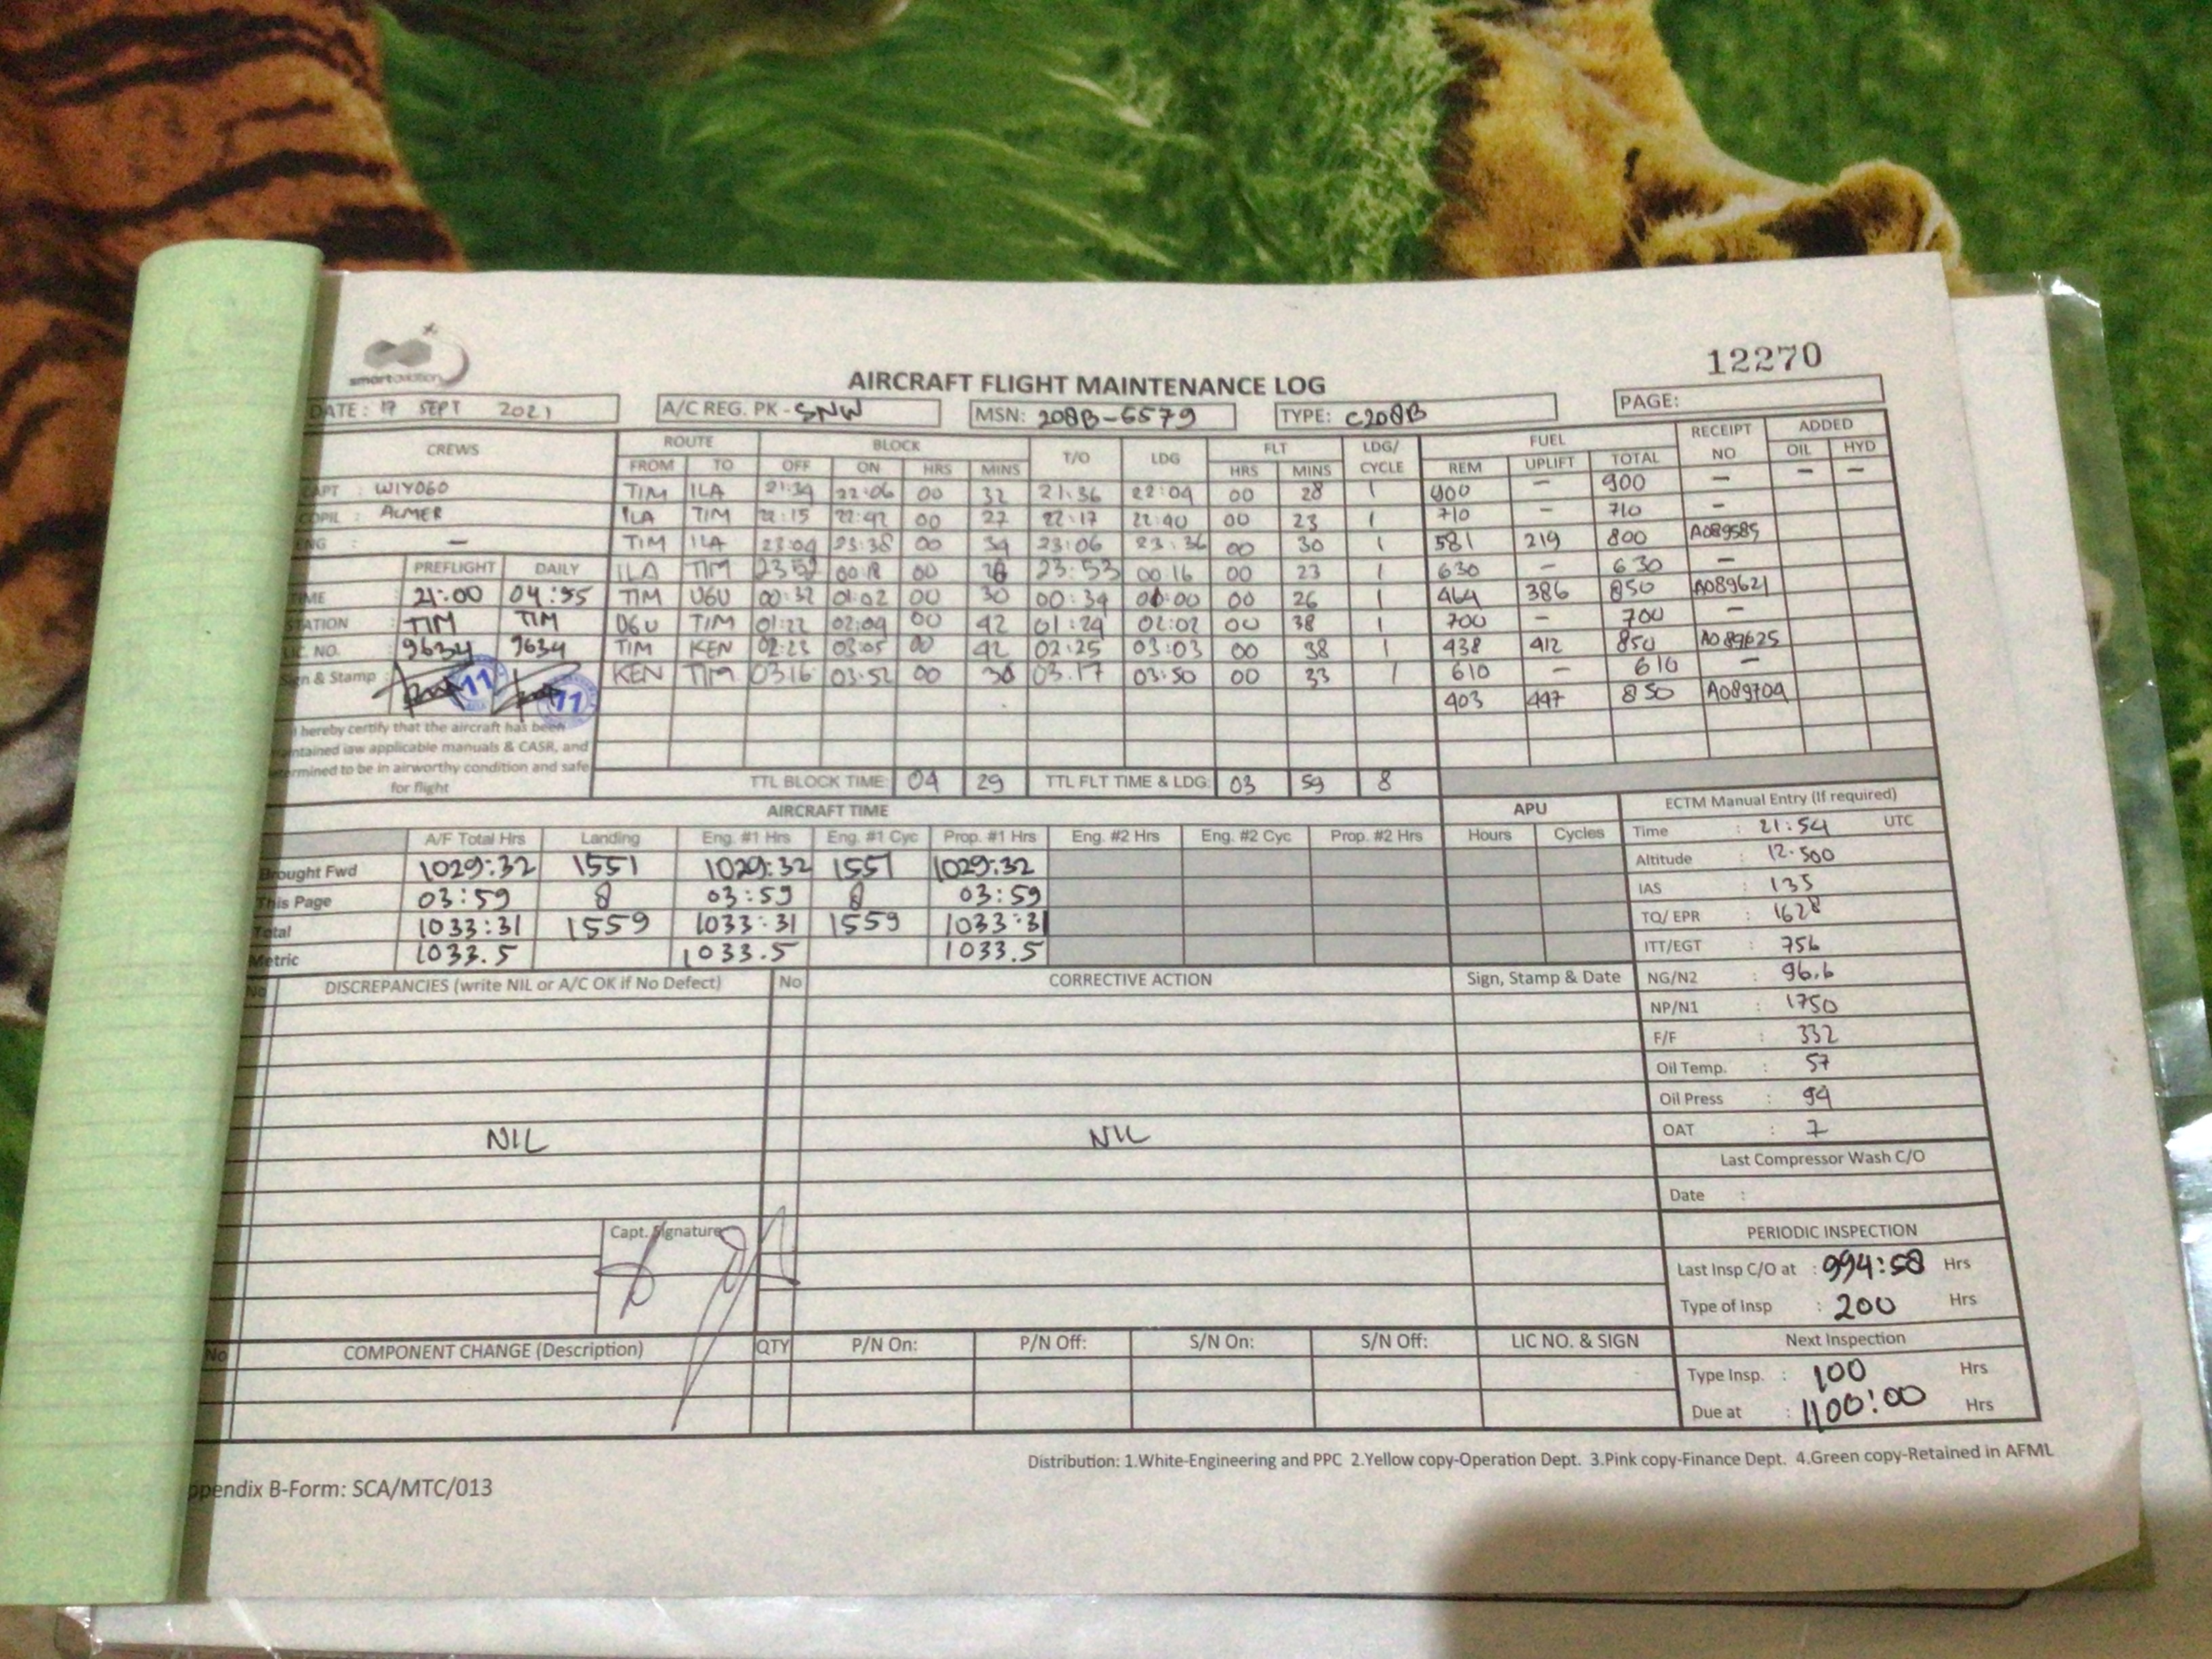 smart aviation
12270
AIRCRAFT FLIGHT MAINTENANCE LOG
DATE: 17 SEPT 2021 A/C REG. PK - SNW MSN: 208B-5579 TYPE: C208B PAGE:
CREWS ROUTE BLOCK T/O LDG FLT LDG/CYCLE FUEL RECEIPT NO ADDED
FROM TO OFF ON HRS MINS HRS MINS REM UPLIFT TOTAL OIL HYD
CAPT : WIYOGO TIM ILA 21:34 22:06 00 32 21:36 22:04 00 28 1 900 - 900 - - -
COPIL : ALMER ILA TIM 22:15 22:42 00 27 22:17 22:40 00 23 1 710 - 710 -
ENG : - TIM ILA 23:04 23:38 00 34 23:06 23:36 00 30 1 581 219 800 A089585
PREFLIGHT DAILY ILA TIM 23:52 00:18 00 26 23:53 00:16 00 23 1 630 - 630 -
TIME 21:00 04:55 TIM UGU 00:32 01:02 00 30 00:34 01:00 00 26 1 464 386 850 A089621
STATION : TIM TIM UGU TIM 01:22 02:04 00 42 01:24 02:02 00 38 1 700 - 700 -
LIC NO. : 9634 9634 TIM KEN 02:23 03:05 00 42 02:25 03:03 00 38 1 438 412 850 A089625
Sign & Stamp : 11 11 KEN TIM 03:16 03:52 00 36 03:17 03:50 00 33 1 610 - 610 -
403 447 850 A089704
I hereby certify that the aircraft has been
maintained iaw applicable manuals & CASR, and
determined to be in airworthy condition and safe
for flight
TTL BLOCK TIME: 04 29 TTL FLT TIME & LDG: 03 59 8
AIRCRAFT TIME APU ECTM Manual Entry (If required)
A/F Total Hrs Landing Eng. #1 Hrs Eng. #1 Cyc Prop. #1 Hrs Eng. #2 Hrs Eng. #2 Cyc Prop. #2 Hrs Hours Cycles Time : 21:54 UTC
Brought Fwd 1029:32 1551 1029:32 1551 1029:32 Altitude : 12.500
This Page 03:59 8 03:59 8 03:59 IAS : 135
Total 1033:31 1559 1033:31 1559 1033:31 TQ/ EPR : 1628
Metric 1033.5 1033.5 1033.5 ITT/EGT : 756
No DISCREPANCIES (write NIL or A/C OK if No Defect) No CORRECTIVE ACTION Sign, Stamp & Date NG/N2 : 96.6
NP/N1 : 1750
F/F : 332
Oil Temp. : 57
Oil Press : 94
NIL NIL OAT : 7
Last Compressor Wash C/O
Date :
Capt. Signature PERIODIC INSPECTION
Last Insp C/O at : 994:58 Hrs
Type of Insp : 200 Hrs
No COMPONENT CHANGE (Description) QTY P/N On: P/N Off: S/N On: S/N Off: LIC NO. & SIGN Next Inspection
Type Insp. : 100 Hrs
Due at : 1100:00 Hrs
Distribution: 1.White-Engineering and PPC 2.Yellow copy-Operation Dept. 3.Pink copy-Finance Dept. 4.Green copy-Retained in AFML
ppendix B-Form: SCA/MTC/013